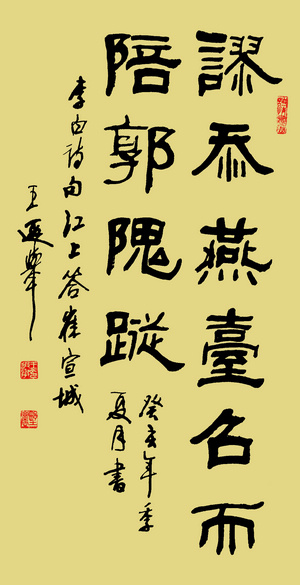 謬忝燕臺召而
陪郭隗蹤
癸亥年季
夏月書
李白詩句江上答崔宣城
王遐舉